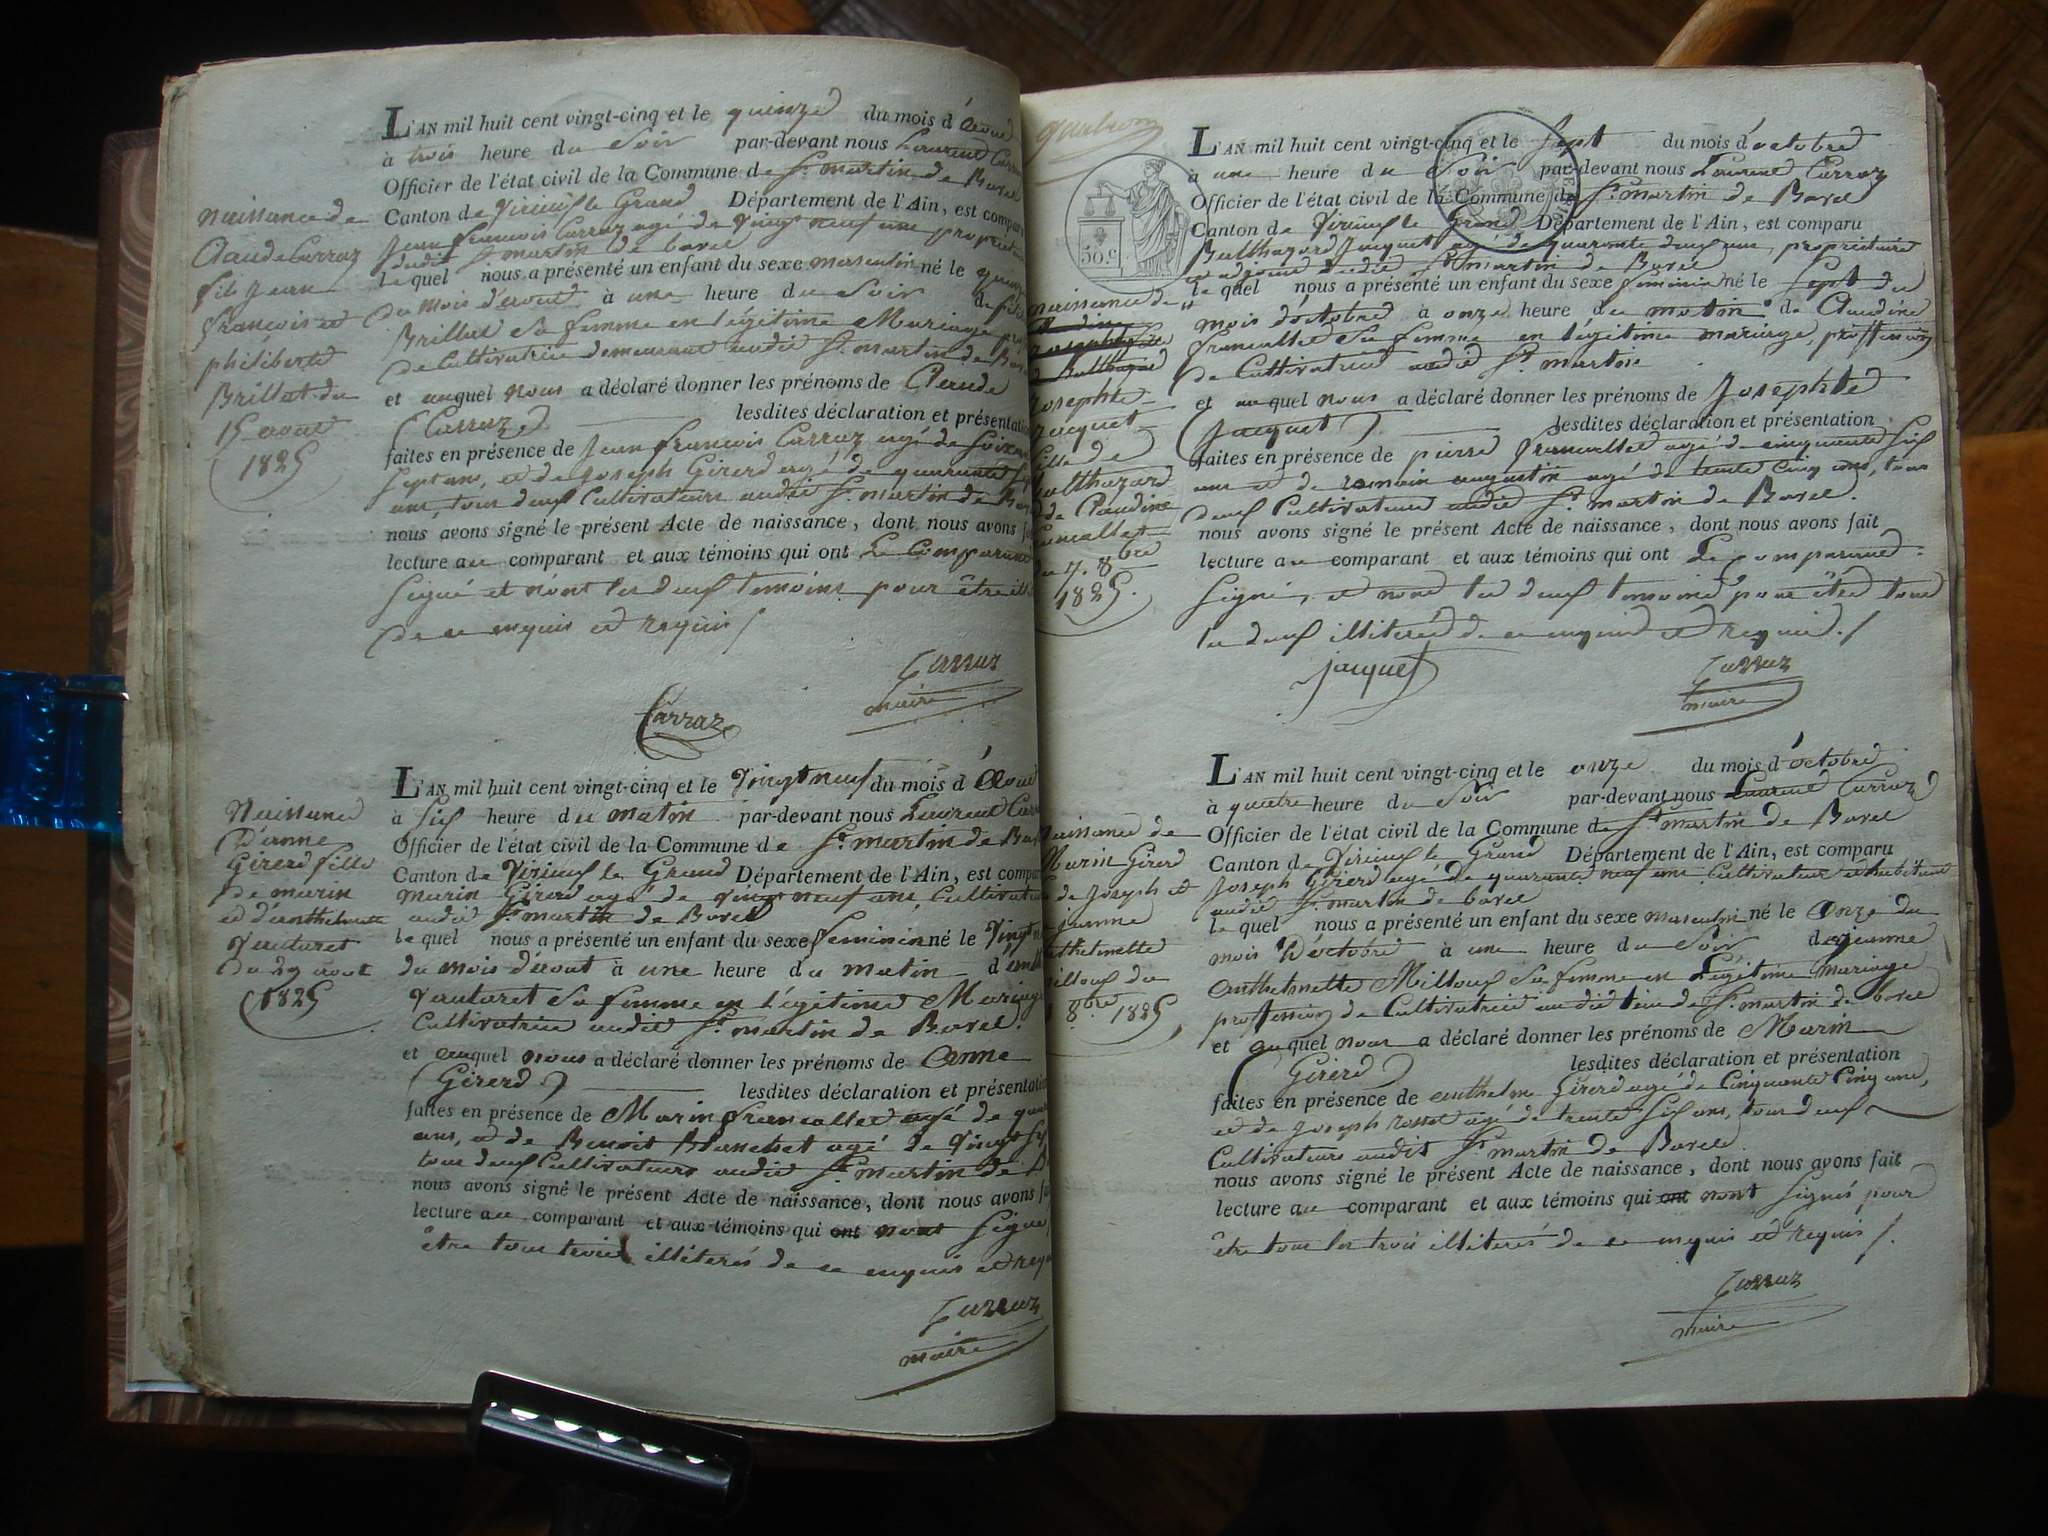 Naissance de
Claude Carraz
fils Jean
François et
philiberte
Brillat du
15 aout
1825
L'AN mil huit cent vingt-cinq et le quinze du mois d'Aout
à trois heure du Soir par-devant nous Laurent
Officier de l'état civil de la Commune de St. martin de Bavel
Canton de Virieux le Grand Département de l'Ain, est compa
Jean françois Carraz agé de vingt neuf ans
dudit St martin de bavel
le quel nous a présenté un enfant du sexe masculin né le
du mois d'aout à une heure du Soir de
Brillat Sa femme en légitime Mariage
de Cultivatrice demeurant audit St. martin de
et auquel nous a déclaré donner les prénoms de Claude
(Carraz) lesdites déclaration et présentation
faites en présence de Jean françois Carraz agé de
Sept ans, et de Joseph Girerd agé de quarante
ans, tous deux Cultivateurs audit St. martin de
nous avons signé le présent Acte de naissance, dont nous avons
lecture au comparant et aux témoins qui ont Le Comparant
Signé et n'ont les deux temoins pour être
de ce enquis et requis /
Carraz
maire
Carraz
Naissance
D'anne
Girerd fille
de marin
et d'anthelmette
Vauturet
du 29 aout
1825
L'AN mil huit cent vingt-cinq et le Vingt neuf du mois d'Aout
à six heure du matin par-devant nous Laurent
Officier de l'état civil de la Commune de St. martin de
Canton de Virieux le Grand Département de l'Ain, est compa
marin Girerd agé de vingt neuf ans, Cultivateur
audit St martin de Bavel
le quel nous a présenté un enfant du sexe feminin né le Vingt
du mois d'aout à une heure du matin
Vauturet Sa femme en légitime Mariage
Cultivatrice audit St. martin de Bavel.
et auquel nous a déclaré donner les prénoms de Anne
(Girerd) lesdites déclaration et présentation
faites en présence de Marin francallet agé de
ans, et de Benoit Blanchet agé de Vingt
tous deux Cultivateurs audit St. martin de
nous avons signé le présent Acte de naissance, dont nous avons
lecture au comparant et aux témoins qui ont nont Signé
être tous trois illiterés de ce enquis et
Carraz
maire
50 c
Naissance de
Josephte
Jacquet
fille de
Balthazard
de Claudine
francallet
du 7. 8bre
1825.
L'AN mil huit cent vingt-cinq et le Sept du mois d'octobre
à une heure du Soir par-devant nous Laurent Carraz
Officier de l'état civil de la Commune de St martin de Bavel
Canton de Virieux le Grand Département de l'Ain, est comparu
Balthazard Jacquet agé de quarante deux ans, proprietaire
et adjoint dudit St martin de Bavel
le quel nous a présenté un enfant du sexe feminin né le Sept du
mois d'octobre à onze heure du matin de Claudine
francallet Sa femme en légitime mariage, proffession
de Cultivatrice audit St. martin
et auquel nous a déclaré donner les prénoms de Josephte
(Jacquet) lesdites déclaration et présentation
faites en présence de pierre francallet agé de cinquante six
ans et de romain augustin agé de trente cinq ans, tous
deux Cultivateurs audit St. martin de Bavel.
nous avons signé le présent Acte de naissance, dont nous avons fait
lecture au comparant et aux témoins qui ont Le comparant
Signé, et nont les deux temoins pour être tous
les deux illiterés de ce enquis et requis. /
Jacquet
Carraz
maire
Naissance de
Marin Girerd
de Joseph et
jeanne
anthelmette
Milloux du
8bre 1825
L'AN mil huit cent vingt-cinq et le onze du mois d'octobre
à quatre heure du Soir par-devant nous Laurent Carraz
Officier de l'état civil de la Commune de St martin de Bavel
Canton de Virieux le Grand Département de l'Ain, est comparu
Joseph Girerd agé de quarante neuf ans Cultivateur et habitant
audit St. martin de bavel
le quel nous a présenté un enfant du sexe masculin né le Onze du
mois D'octobre à une heure du Soir de jeanne
anthelmette Milloux Sa femme en Légitime Mariage
proffession de Cultivatrice audit lieu de St. martin de bavel
et auquel nous a déclaré donner les prénoms de Marin
(Girerd) lesdites déclaration et présentation
faites en présence de anthelme Girerd agé de Cinquante Cinq ans,
et de Joseph rosset agé de trente Six ans, tous deux
Cultivateurs audit St. martin de Bavel
nous avons signé le présent Acte de naissance, dont nous avons fait
lecture au comparant et aux témoins qui ont nont Signés pour
être tous les trois illiterés de ce enquis et requis /.
Carraz
maire